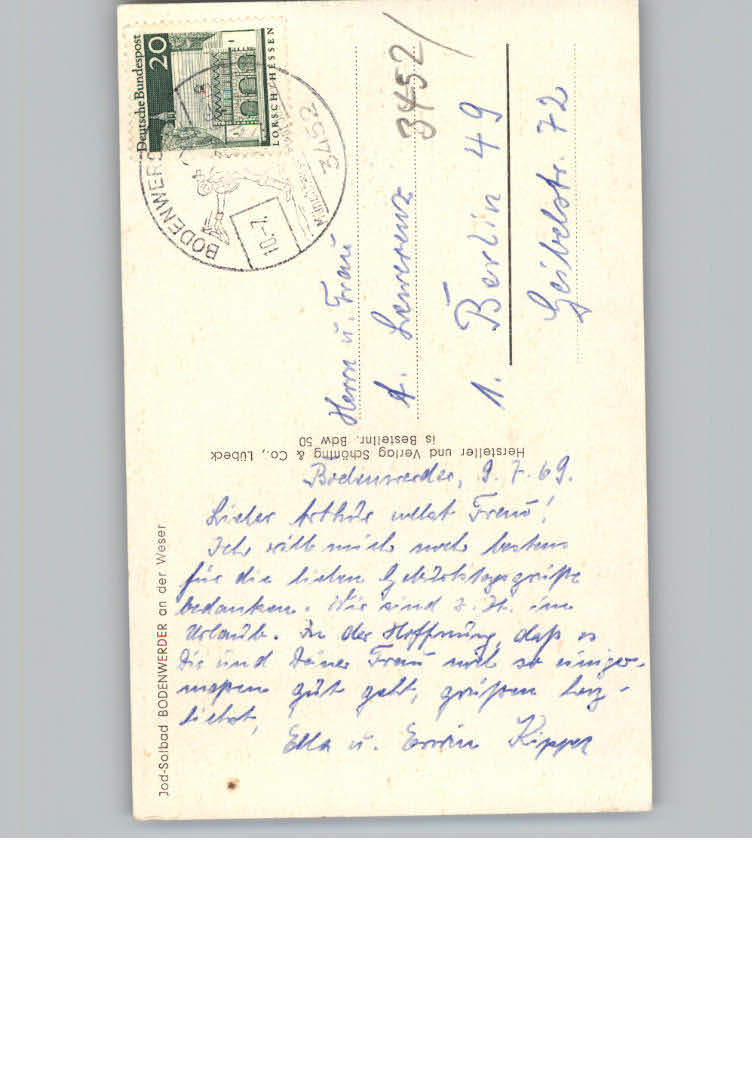 Deutsche Bundespost
20
LORSCH/HESSEN
3452
BODENWERD
Münchhausen
10.-7.
3452
Herrn u. Frau
A. Lewerenz
1. Berlin 49
Geibelstr. 72
Hersteller und Verlag Schöning & Co., Lübeck
is Bestellnr. Bdw 50
Jod-Solbad BODENWERDER an der Weser
Bodenwerder, 9.7.69.
Lieber Arthur nebst Frau!
Ich will mich noch bestens
für die lieben Geburtstagsgrüße
bedanken. Wir sind z. Zt. im
Urlaub. In der Hoffnung, daß es
Dir und Deiner Frau noch so einiger-
maßen gut geht, grüßen herz-
lichst,
Ella u. Erwin Kipper